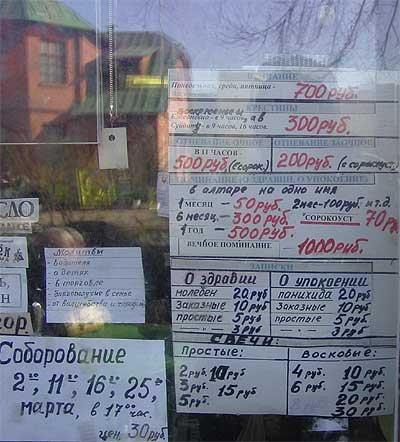 ВЕНЧАНИЕ
Понедельник, среда, пятница - 700 руб.
КРЕСТИНЫ
воскресение и
в 9 часов,
Суббота - в 9 часов, 16 часов. 300 руб.
ОТПЕВАНИЕ ОЧНОЕ ОТПЕВАНИЕ ЗАОЧНОЕ
В 11 ЧАСОВ -
500 руб. (с сорок.) 200 руб. (с сорокоуст.)
ПОМИНАНИЕ (О ЗДРАВИИ, О УПОКОЕНИИ)
в алтаре на одно имя
1 месяц - 50 руб. 2 мес - 100 руб. и т.д.
6 месяц. - 300 руб. "СОРОКОУСТ 70 р
1 год - 500 руб.
ВЕЧНОЕ ПОМИНАНИЕ - 1000 руб.
ЗАПИСКИ
О здравии О упокоении
молебен 20 руб панихида 20 руб
Заказные 10 руб Заказные 10 руб
простые 5 руб простые 5 руб
3 руб 3 руб
СВЕЧИ:
Простые: Восковые:
2 руб 10 руб 4 руб 10 руб
3 руб. 15 руб 6 руб 15 руб
5 руб. 20 руб
30 руб
СЛО
ОР.
Молитвы
- Водителя
- о детях
- в торговле
- Благополучие в семье
- от пьянства
Соборование
2⁰⁰, 11⁰⁰, 16⁰⁰, 25⁰⁰,
марта, в 17⁰⁰ час.
цен. 30 руб.